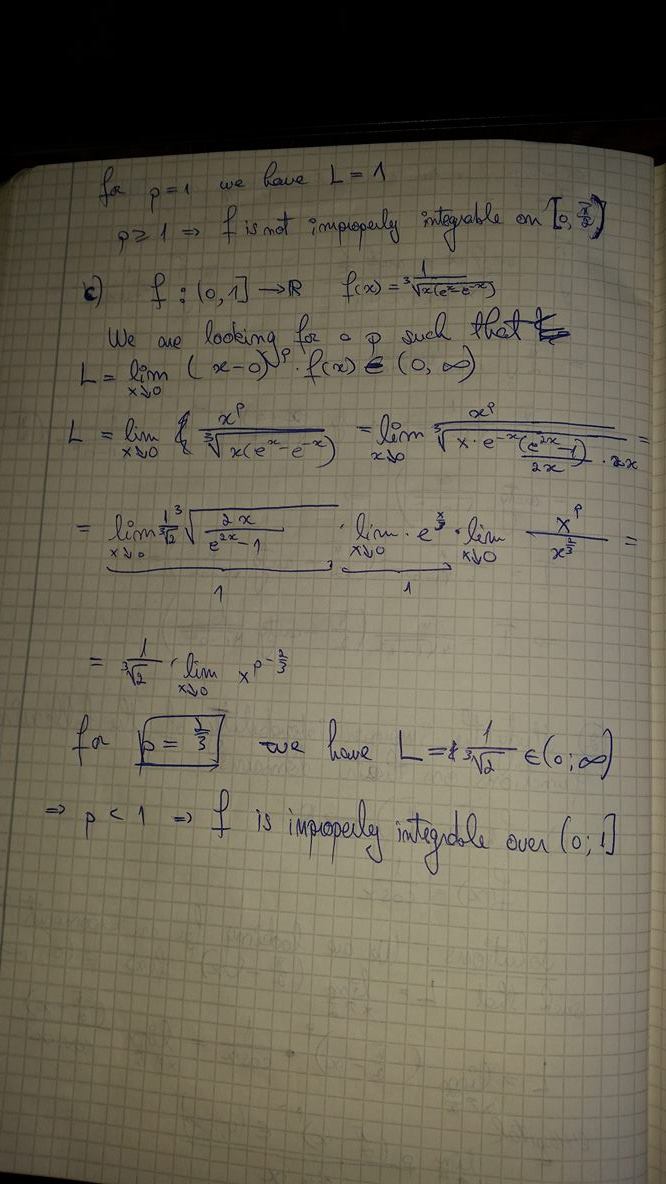 for p=1 we have L = 1
p ≥ 1 ⇒ f is not improperly integrable on [0, π/2)
c) f : (0,1] → ℝ f(x) = 1/∛(x(e^x-e^-x))
We are looking for a p such that
L = lim x↘0 (x-0)^p · f(x) ∈ (0, ∞)
L = lim x↘0 x^p/∛(x(e^x-e^-x)) = lim x↘0 x^p/∛(x·e^-x (e^2x-1)/2x · 2x) =
= lim x↘0 1/∛2 ∛(2x/(e^2x-1)) · lim x↘0 · e^(x/3) · lim x↘0 x^p/x^(2/3) =
1 1
= 1/∛2 · lim x↘0 x^(p-2/3)
for p = 2/3 we have L = 1/∛2 ∈ (0; ∞)
⇒ p < 1 ⇒ f is improperly integrable over (0; 1]